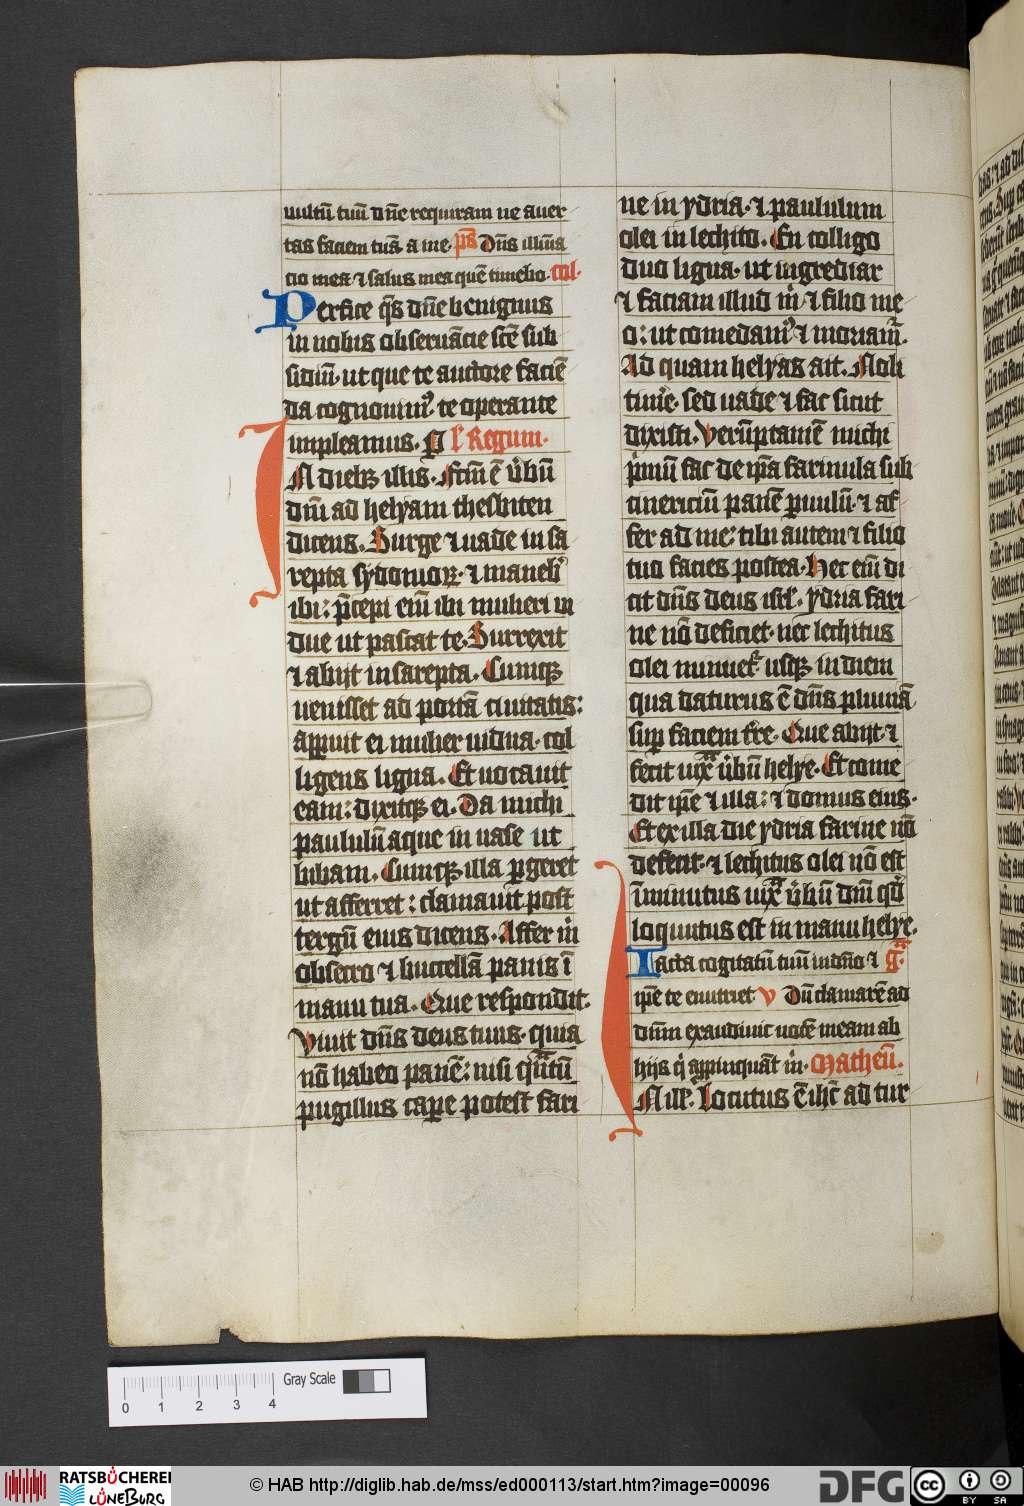 uultū tuū dn̄e requiram ne auer
tas faciem tuā a me. ps̄ Dn̄s illūia
cio mea ⁊ salus mea quē timebo. col.
Perfice qs̄ dn̄e benignus
in nobis obseruācie scē sub
sidiū. ut que te auctore faciē
da cognouimꝰ te operante
impleamus. P l' Regum.
IN diebꝫ illis. Fcm̄ ē ûbū
dm̄i ad helyam thesbiten
dicens. Surge ⁊ uade in sa
repta sydonioꝝ. ⁊ maneb'
ibi: p̄cepi eni̅ ibi mulieri ui
due ut pascat te. Surrexit
⁊ abijt in sarepta. Cumqꝫ
uenisset ad portā ciuitatis:
apparuit ei mulier uidua. col
ligens ligna. Et uocauit
eam: dixitqꝫ ei. Da michi
paululū aque in uase ut
bibam. Cumqꝫ illa ꝑgeret
ut afferret: clamauit post
tergū eius dicens. Affer m̊
obsecro ⁊ buccellā panis ī
manu tua. Que respondit.
Viuit dn̄s deus tuus. quia
nō habeo panē: nisi quātū
pugillus capere potest fari
ne in ydria. ⁊ paululum
olei in lechito. En colligo
duo ligna. ut ingrediar
⁊ faciam illud m̊ ⁊ filio me
o: ut comedamꝰ ⁊ moriam̄.
Ad quam helyas ait. Noli
time. sed uade ⁊ fac sicut
dixisti. Verūptamē michi
p̊mū fac de ip̄a farinula sub
cinericiū panē ꝑuulū. ⁊ af
fer ad me: tibi autem ⁊ filio
tuo facies postea. Hec eni̅ di
cit dn̄s deus isrl'. ydria fari
ne nō deficiet. nec lechitus
olei minuet̉. usqꝫ in diem
qua daturus ē dn̄s pluuiā
suꝑ faciem tr̄e. Que abijt. ⁊
fecit iuxᵃ ûbū helye. Et come
dit ip̄e ⁊ illa: ⁊ domus eius.
Et ex illa die ydria farine nō
defecit. ⁊ lechitus olei nō est
īminutus iuxᵃ ûbū dm̄i qd̊
loquutus est in manu helye.
Iacta cogitatū tuū in dn̄o ⁊ gᵃ.
ip̄e te enutriet. v Dū clamarē ad
dn̄m exaudiuit uocē meam ab
hijs q̊ appinquāt m̊. Matheū.
IN ill'. Locutus ē ihc̄ ad tur
0 1 2 3 4 Gray Scale
RATSBÜCHEREI LÜNEBURG
© HAB http://diglib.hab.de/mss/ed000113/start.htm?image=00096
DFG
cc BY SA